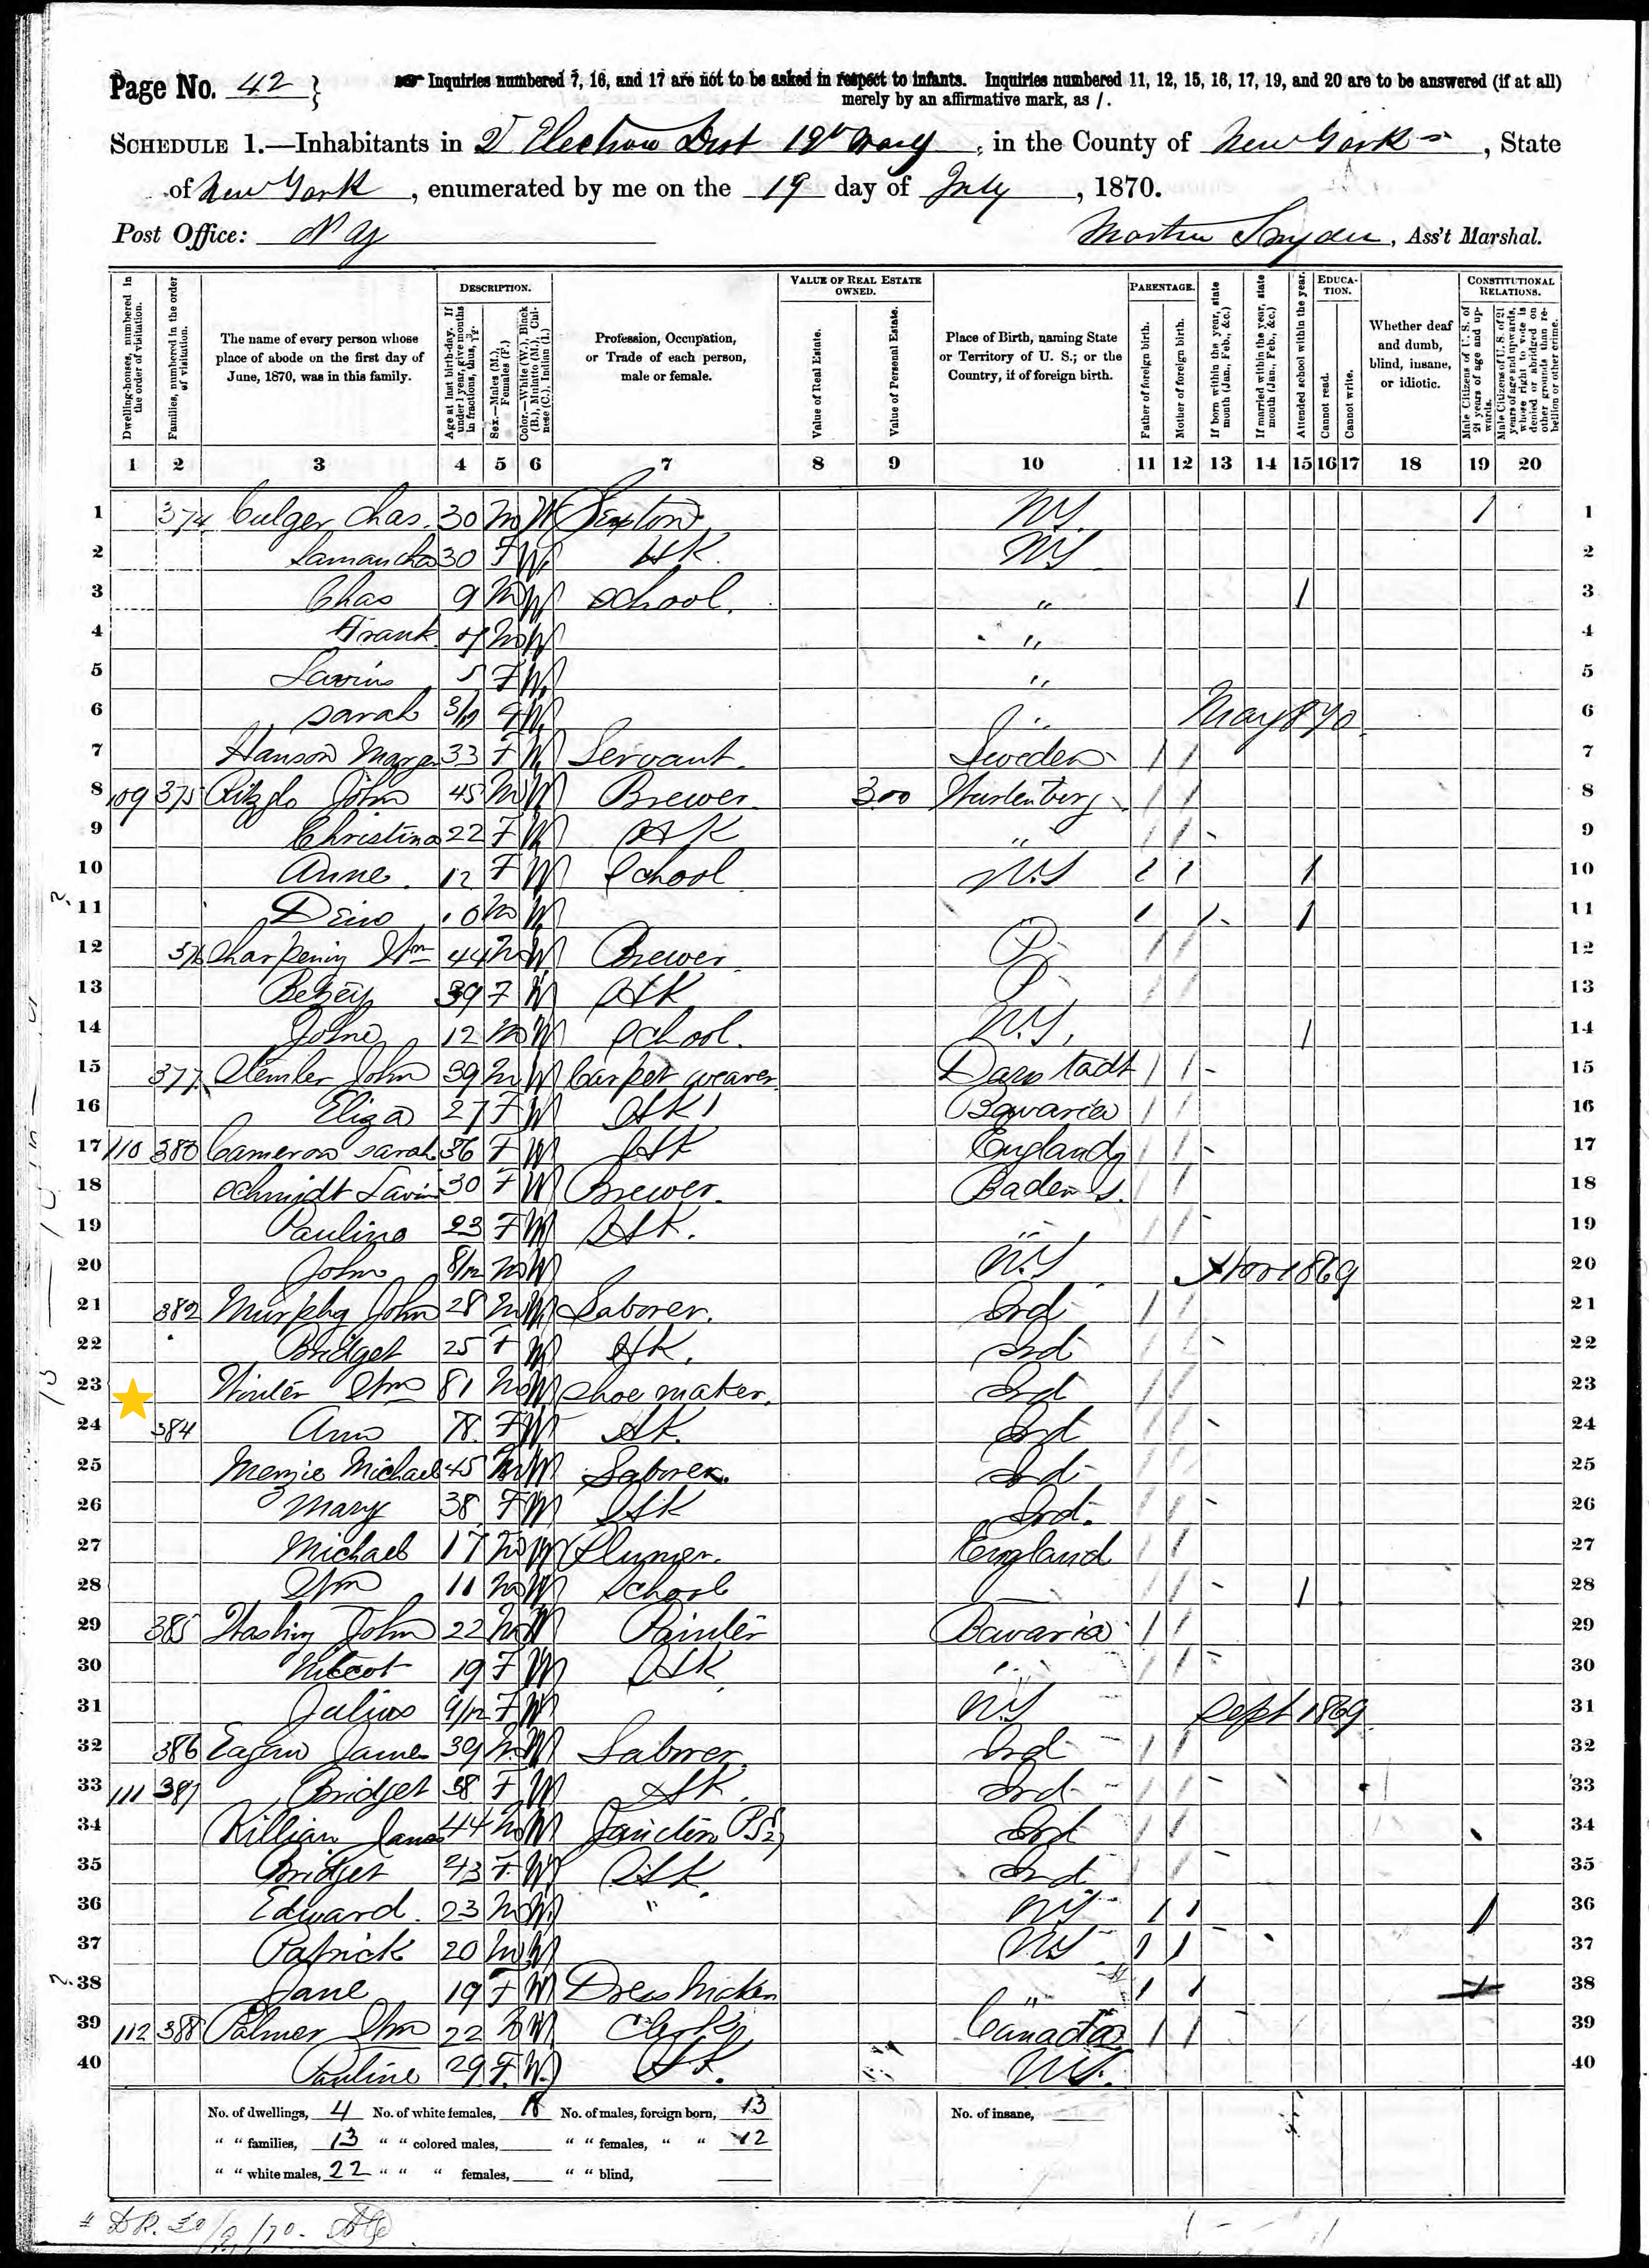 Page No. 42 } Inquiries numbered 7, 16, and 17 are not to be asked in respect to infants. Inquiries numbered 11, 12, 15, 16, 17, 19, and 20 are to be answered (if at all)
merely by an affirmative mark, as /.
SCHEDULE 1.—Inhabitants in Election Dist 19 Ward, in the County of New York, State
of New York, enumerated by me on the 19 day of July, 1870.
Post Office: N Y Snyder, Ass't Marshal.
Dwelling-houses, numbered in the order of visitation.
Families, numbered in the order of visitation.
The name of every person whose place of abode on the first day of June, 1870, was in this family.
DESCRIPTION.
Age at last birth-day. If under 1 year, give months in fractions, thus, 3/12.
Sex.—Males (M.), Females (F.)
Color.—White (W.), Black (B.), Mulatto (M.), Chinese (C.), Indian (I.)
Profession, Occupation, or Trade of each person, male or female.
VALUE OF REAL ESTATE OWNED.
Value of Real Estate.
Value of Personal Estate.
Place of Birth, naming State or Territory of U. S.; or the Country, if of foreign birth.
PARENTAGE.
Father of foreign birth.
Mother of foreign birth.
If born within the year, state month (Jan., Feb., &c.)
If married within the year, state month (Jan., Feb., &c.)
Attended school within the year.
EDUCATION.
Cannot read.
Cannot write.
Whether deaf and dumb, blind, insane, or idiotic.
CONSTITUTIONAL RELATIONS.
Male Citizens of U. S. of 21 years of age and upwards.
Male Citizens of U. S. of 21 years of age and upwards, whose right to vote is denied or abridged on other grounds than rebellion or other crime.
1 2 3 4 5 6 7 8 9 10 11 12 13 14 15 16 17 18 19 20
1 374 Culger Chas. 30 M W Sexton NY / 1
2 Samantha 30 F W HK NY 2
3 Chas 9 M W School. " / 3
4 Frank 7 M W " 4
5 Lavin 5 F W " 5
6 Sarah 3/12 F W " May 1870 6
7 Hanson 33 F W Servant. Sweden / / 7
8 109 375 John 45 M W Brewer 300 Wurtenberg / / 8
9 Christina 22 F W HK " / / 9
10 Anne 12 F W School NY / / / 10
11 M W / / / 11
12 376 Wm 44 M W Brewer P / / 12
13 Betsey 39 F W HK P / / 13
14 John 12 M W School. N.Y. / 14
15 377 John 39 M W Carpet weaver Darmstadt / / 15
16 Eliza 27 F W HK Bavaria / / 16
17 110 380 Cameron Sarah 36 F W HK England / / 17
18 Schmidt 30 F W Brewer. Baden / / 18
19 Pauline 23 F W HK. " / / 19
20 John 8/12 M W N.Y Nov 1869 20
21 382 Murphy John 28 M W Laborer. Ird / / 21
22 Bridget 25 F W HK. Ird / / 22
23 Winter Wm 81 M W Shoe maker. Ird / / 23
24 384 Ann 78 F W HK. Ird / / 24
25 Menzie Michael 45 M W Laborer. Ird / / 25
26 Mary 38 F W HK Ird. / / 26
27 Michael 17 M W Plumer. England / / 27
28 Wm 11 M W School / / / 28
29 385 John 22 M W Painter Bavaria / / 29
30 19 F W HK " / / 30
31 Julius 9/12 F W NY Sept 1869 31
32 386 Eagan James 39 M W Laborer Ird / / 32
33 111 387 Bridget 38 F W HK. Ird / / 33
34 Killian James 44 M W Ird 34
35 Bridget 43 F W HK. Ird / / 35
36 Edward. 23 M W " NY / / / 36
37 Patrick 20 M W NY / / 37
38 Jane 19 F W Dress Maker " / / 38
39 112 388 Palmer Wm 22 M W Clerk Canada / / 39
40 Pauline 29 F W HK. NY. 40
No. of dwellings, 4 No. of white females, 18 No. of males, foreign born, 13 No. of insane,
" " families, 13 " " colored males, " " females, " " 12
" " white males, 22 " " " females, " " blind,